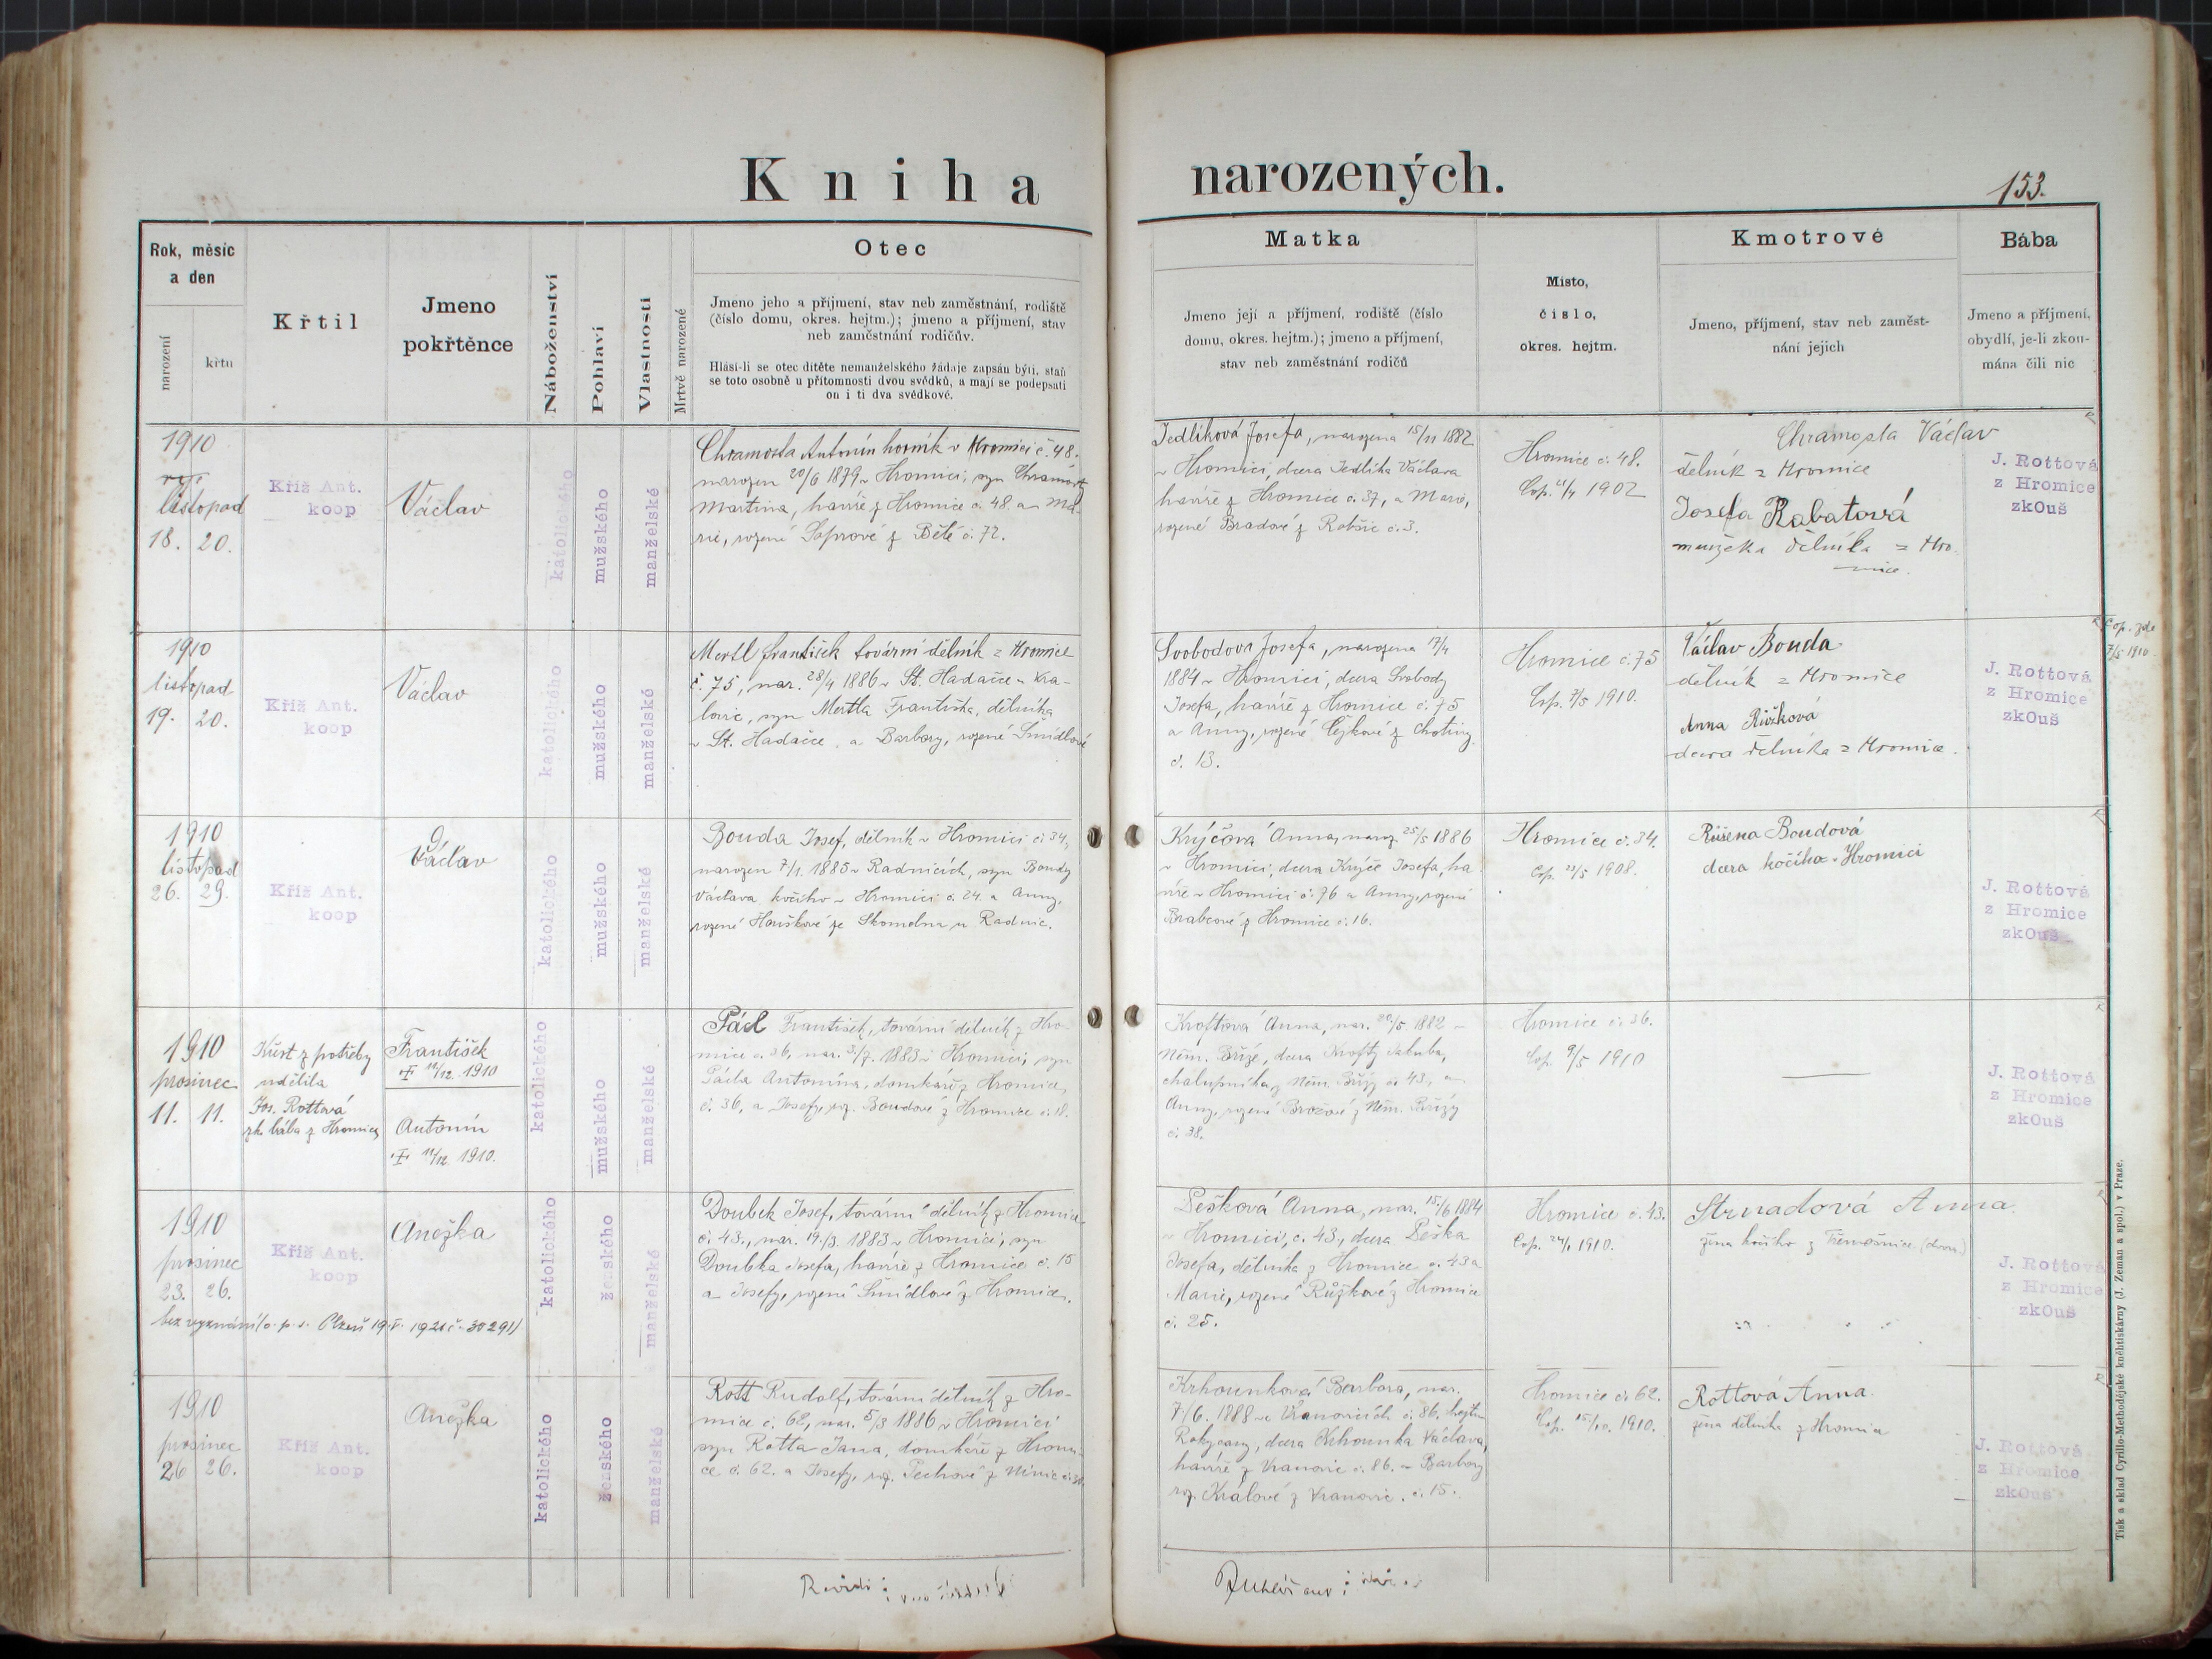 Kniha narozených.
153.
Rok, měsíc
a den
narození
křtu
Křtil
Jmeno
pokřtěnce
Náboženství
Pohlaví
Vlastnosti
Mrtvě narozené
Otec
Jmeno jeho a příjmení, stav neb zaměstnání, rodiště
(číslo domu, okres. hejtm.); jmeno a příjmení, stav
neb zaměstnání rodičův.
Hlásí-li se otec dítěte nemanželského žádaje zapsán býti, staň
se toto osobně u přítomnosti dvou svědků, a mají se podepsati
on i ti dva svědkové.
Matka
Jmeno její a příjmení, rodiště (číslo
domu, okres. hejtm.); jmeno a příjmení,
stav neb zaměstnání rodičů
Místo,
číslo,
okres. hejtm.
Kmotrové
Jmeno, příjmení, stav neb zaměst-
nání jejich
Bába
Jmeno a příjmení,
obydlí, je-li zkou-
mána čili nic
1910
listopad
18. 20.
Kříž Ant.
koop
Václav
katolického
mužského
manželské
Chramosta Antonín horník v Hromici č. 48.
narozen 20/6 1879 v Hromici, syn Chramosty
Martina, havíře z Hromice č. 48. a Ma-
rie, rozené z Bělé č. 72.
Jedlíková Josefa, narozena 15/11 1882
v Hromici, dcera Jedlíka Václava
havíře z Hromice č. 37, a Marie,
rozené Bradové z Robčic č. 3.
Hromice č. 48.
Cop. 1902
Chramosta Václav
dělník z Hromice
Josefa Rabatová
manželka dělníka z Hro-
mice.
J. Rottová
z Hromice
zkOuš
1910
listopad
19. 20.
Kříž Ant.
koop
Václav
katolického
mužského
manželské
Mertl František tovární dělník z Hromice
č. 75, nar. 28/4 1886 v St. Hadačce u Kra-
lovic, syn Mertla Františka, dělníka
v St. Hadačce, a Barbory, rozené Šmídlové
Svobodova Josefa, narozena 17/4
1884 v Hromici, dcera Svobody
Josefa, havíře z Hromice č. 75
a Anny, rozené z Chotiny
č. 13.
Hromice č. 75
Cop. 7/5 1910.
Václav Bouda
dělník z Hromice
Anna Růžková
dcera dělníka z Hromice.
J. Rottová
z Hromice
zkOuš
Cop. zde
7/5 1910.
1910
listopad
26. 29.
Kříž Ant.
koop
Václav
katolického
mužského
manželské
Bouda Josef, dělník v Hromici č. 34,
narozen 7/1. 1885 v Radnicích, syn Boudy
Václava kočího v Hromici č. 24. a Anny,
rozené Houškové ze Skomelna u Radnic.
Krýčová Anna, naroz. 25/5 1886
v Hromici, dcera Krýče Josefa, ha-
víře v Hromici č. 76 a Anny, rozené
Brabcové z Hromice č. 16.
Hromice č. 34.
Cop. 23/5 1908.
Růžena Boudová
dcera kočího z Hromici
J. Rottová
z Hromice
zkOuš
1910
prosinec
11. 11.
Křest z potřeby
udělila
Jos. Rottová
zk. bába z Hromice
František
† 11/12. 1910
Antonín
† 11/12. 1910.
katolického
mužského
manželské
Pácl František, tovární dělník z Hro-
mice č. 36, nar. 3./7. 1883 v Hromici, syn
Pácla Antonína, domkáře z Hromice,
č. 36, a Josefy, roz. Boudové z Hromice č. 18.
Kroftová Anna, nar. 20/5 1882 v
Něm. Bříze, dcera Krofty Jakuba,
chalupníka z Něm. Břízy č. 43, a
Anny, rozené Brožové z Něm. Břízy
č. 38.
Hromice č. 36.
Cop. 9/5 1910
J. Rottová
z Hromice
zkOuš
1910
prosinec
23. 26.
Kříž Ant.
koop
Anežka
katolického
ženského
manželské
bez vyznání (o. p. s. Plzeň 19.V. 1921 č. 30291)
Doubek Josef, tovární dělník z Hromice
č. 43., nar. 19./3. 1883 v Hromici, syn
Doubka Josefa, havíře z Hromice č. 15
a Josefy, rozené Šmídlové z Hromice.
Pešková Anna, nar. 15./6 1884
v Hromici, č. 43, dcera Peška
Josefa, dělníka z Hromice č. 43 a
Marie, rozené Růžkové z Hromice
č. 25.
Hromice č. 43.
Cop. 24/1 1910.
Strnadová Anna
žena kočího z Třemošnice (dom.)
J. Rottová
z Hromice
zkOuš
1910
prosinec
26 26.
Kříž Ant.
koop
Anežka
katolického
ženského
manželské
Rott Rudolf, tovární dělník z Hro-
mice č. 62, nar. 5/3 1886 v Hromici
syn Rotta Jana, domkáře z Hromi-
ce č. 62. a Josefy, roz. Pechové z
Krhounková Barbora, nar.
7/6. 1888 ve Vranovicích č. 86. hejtm.
Rokycany, dcera Krhounka Václava,
havíře z Vranovic č. 86. a Barbory
roz. Králové z Vranovic. č. 15.
Hromice č. 62.
Cop. 15/10. 1910.
Rottová Anna
žena dělníka z Hromice
J. Rottová
z Hromice
zkOuš
Tisk a sklad Cyrillo-Methodějské knihtiskárny (J. Zeman a spol.) v Praze.